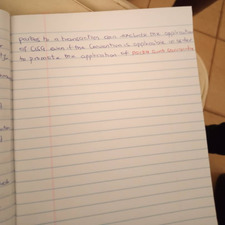 parties to a transaction can exclude the application
of CISG even if the Convention is applicable in order
to promote the application of